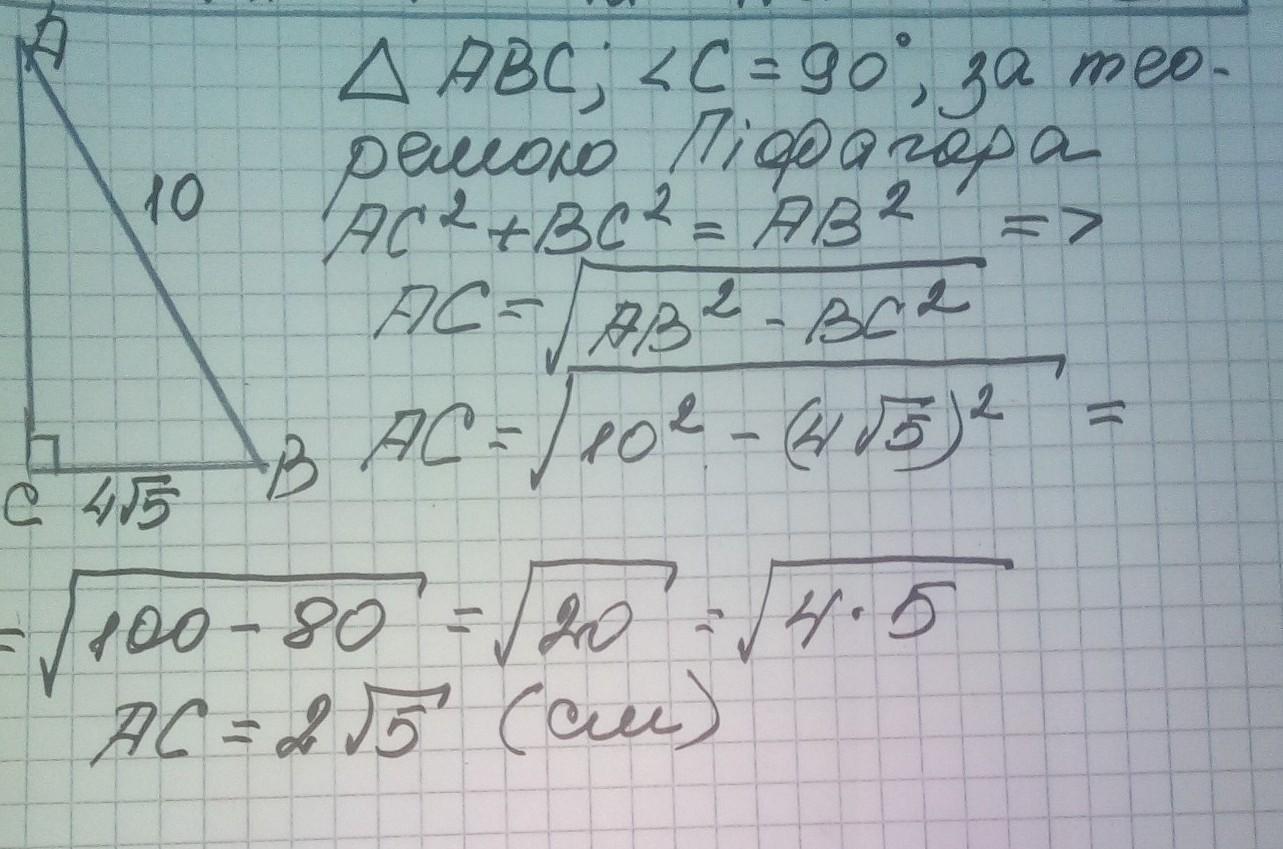 A
10
C 4√5 B
△ ABC; ∠C = 90°, за тео-
ремою Піфагора
AC² + BC² = AB² =>
AC = √(AB² - BC²)
AC = √(10² - (4√5)²) =
= √(100 - 80) = √20 = √(4·5)
AC = 2√5 (см)